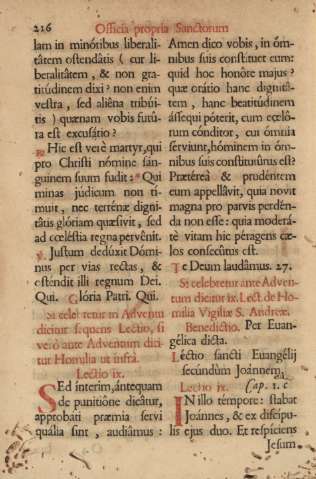 226 Officia propria Sanctorum
lam in minóribus liberali-
tâtem ostendâtis ( cur li-
beralitâtem, & non gra-
titúdinem dixi? non enim
vestra, sed aliêna tribúi-
tis ) quænam vobis futú-
ra est excusátio?
℟. Hic est verè martyr, qui
pro Christi nómine san-
guinem suum fudit: * Qui
minas júdicum non tí-
muit, nec terrénæ digni-
tâtis glóriam quæsívit, sed
ad cœléstia regna pervênit.
℣. Justum dedúxit Dómi-
nus per vias rectas, &
osténdit illi regnum Dei.
Qui. Glória Patri. Qui.
Si celebretur in Adventu
dicitur sequens Lectio, si
verò ante Adventum dici-
tur Homilia ut infrà.
Lectio ix.
SEd interim, ántequam
de punitióne dicâtur,
approbáti præmia servi
quália sint, audiâmus:
Amen dico vobis, in óm-
nibus suis constítuet eum:
quid hoc honôre majus?
quæ orátio hanc dignitâ-
tem, hanc beatitúdinem
ássequi póterit, cum cœló-
rum cónditor, cui ómnia
sérviunt, hóminem in óm-
nibus suis constitutûrus est?
Prætéreà & prudéntem
eum appellâvit, quia novit
magna pro parvis perdén-
da non esse: quia moderá-
tè vitam hic péragens cæ-
los consecûtus est.
Te Deum laudâmus. 27.
Si celebretur ante Adven-
tum dicitur ix. Lect. de Ho-
milia Vigiliæ S. Andreæ.
Benedictio. Per Euan-
gélica dicta.
Léctio sancti Euangélij
secúndùm Joánnem.
Lectio ix. Cap. 1. c
IN illo témpore: stabat
Joánnes, & ex discípu-
lis ejus duo. Et respíciens
Jesum